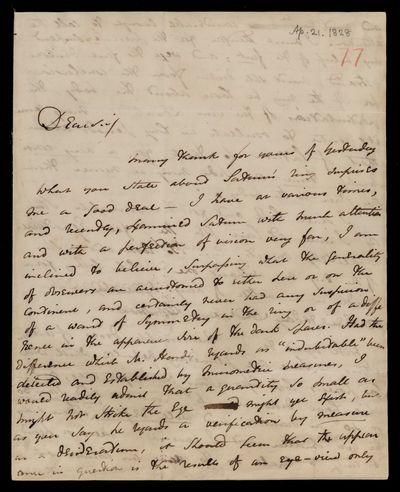 Ap. 21. 1828
77
Dear Sir,
many thanks for yours of yesterday
What you state about Saturn's ring surprises
me a good deal — I have at various times,
and recently, examined Saturn with much attention
and with a perfection of vision very far, I am
inclined to believe, surpassing what the generality
of observers are accustomed to either here or on the
continent, and certainly never had any suspicion
of a want of symmetry in the ring or of a diffe
rence in the apparent size of the dark spaces. Had the
difference which M. Hardi regards as "indubitable" been
detected and established by micrometric measures, I
would readily admit that a quantity so small as
might not strike the eye might yet exist, but
as you say he regards a verification by measure
as a desideratum, it should seem that the appear
ance in question is the results of an eye-view only